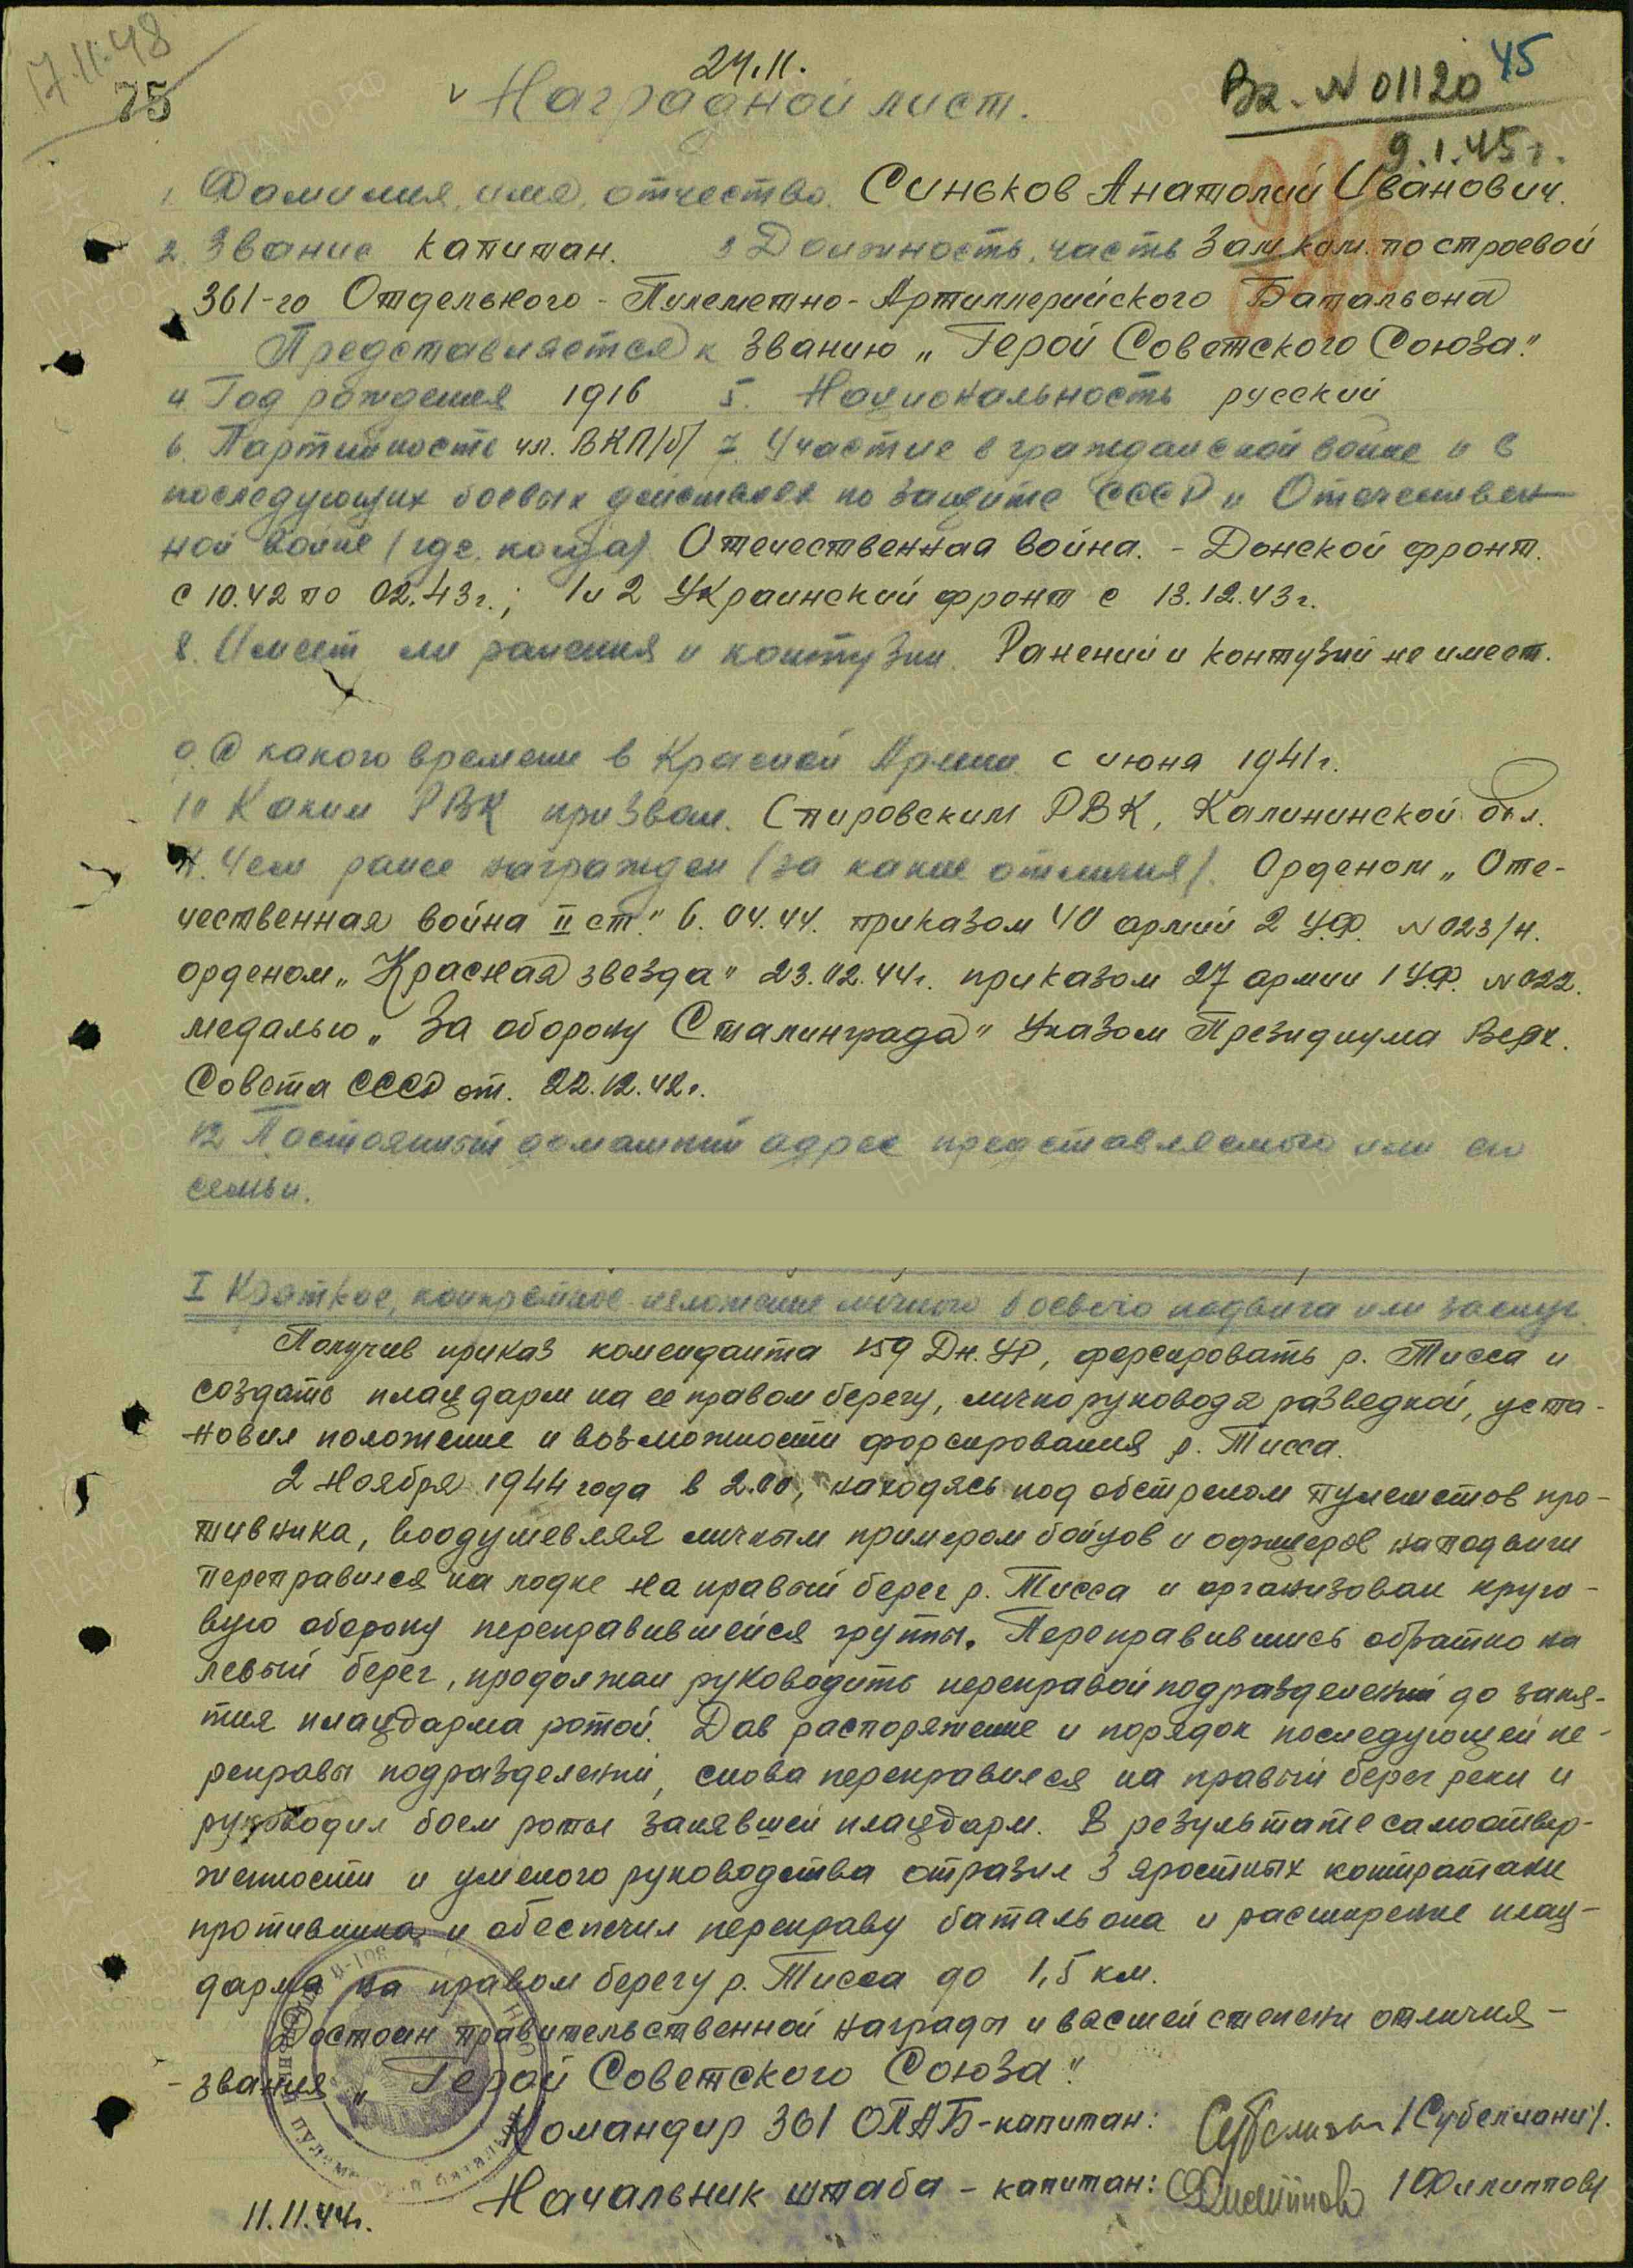 17.11.48
75
24.11.
Наградной лист.
Вх. N 01120 45
9.1.45г.
1. Фамилия, имя, отчество. Синьков Анатолий Иванович.
2. Звание капитан. 3 Должность, часть Зам ком. по строевой
361-го Отдельного - Пулеметно - Артиллерийского Батальона
Представляется к званию „Герой Советского Союза."
4. Год рождения 1916 5. Национальность русский
6. Партийность чл. ВКП/б/ 7. Участие в гражданской войне и в
последующих боевых действиях по защите СССР и Отечествен-
ной войне (где, когда) Отечественная война. - Донской фронт.
с 10.42 по 02.43г.; 1 и 2 Украинский фронт с 13.12.43г.
8. Имеет ли ранения и контузии. Ранений и контузий не имеет.
9. С какого времени в Красной Армии с июня 1941г.
10 Каким РВК призван. Спировским РВК, Калининской обл.
11. Чем ранее награжден (за какие отличия). Орденом „Оте-
чественная война II ст." 6.04.44. приказом 40 армий 2 У.Ф. N 023/н.
орденом „Красная звезда" 23.02.44г. приказом 27 армии 1 У.Ф. N 022.
медалью „За оборону Сталинграда" Указом Президиума Верх.
Совета СССР от. 22.12.42г.
12 Постоянный домашний адрес представляемого или его
семьи.
I Краткое, конкретное изложение личного боевого подвига или заслуг.
Получив приказ коменданта 159 Дн. УР, форсировать р. Тисса и
создать плацдарм на ее правом берегу, лично руководя разведкой, уста-
новил положение и возможности форсирования р. Тисса.
2 Ноября 1944 года в 2.00, находясь под обстрелом пулеметов про-
тивника, воодушевляя личным примером бойцов и офицеров на подвиги
переправился на лодке на правый берег р. Тисса и организовал круго-
вую оборону переправившейся группы. Переправившись обратно на
левый берег, продолжал руководить переправой подразделений до заня-
тия плацдарма ротой. Дав распоряжение и порядок последующей пе-
реправы подразделений, снова переправился на правый берег реки и
руководил боем роты занявшей плацдарм. В результате самоотвер-
женности и умелого руководства отразил 3 яростных контратаки
противника и обеспечил переправу батальона и расширение плац-
дарма на правом берегу р. Тисса до 1,5 км.
Достоин правительственной награды и высшей степени отличия -
- звания „Герой Советского Союза."
Командир 361 ОПАБ - капитан:
Начальник штаба - капитан: /Филиппов/
11.11.44г.